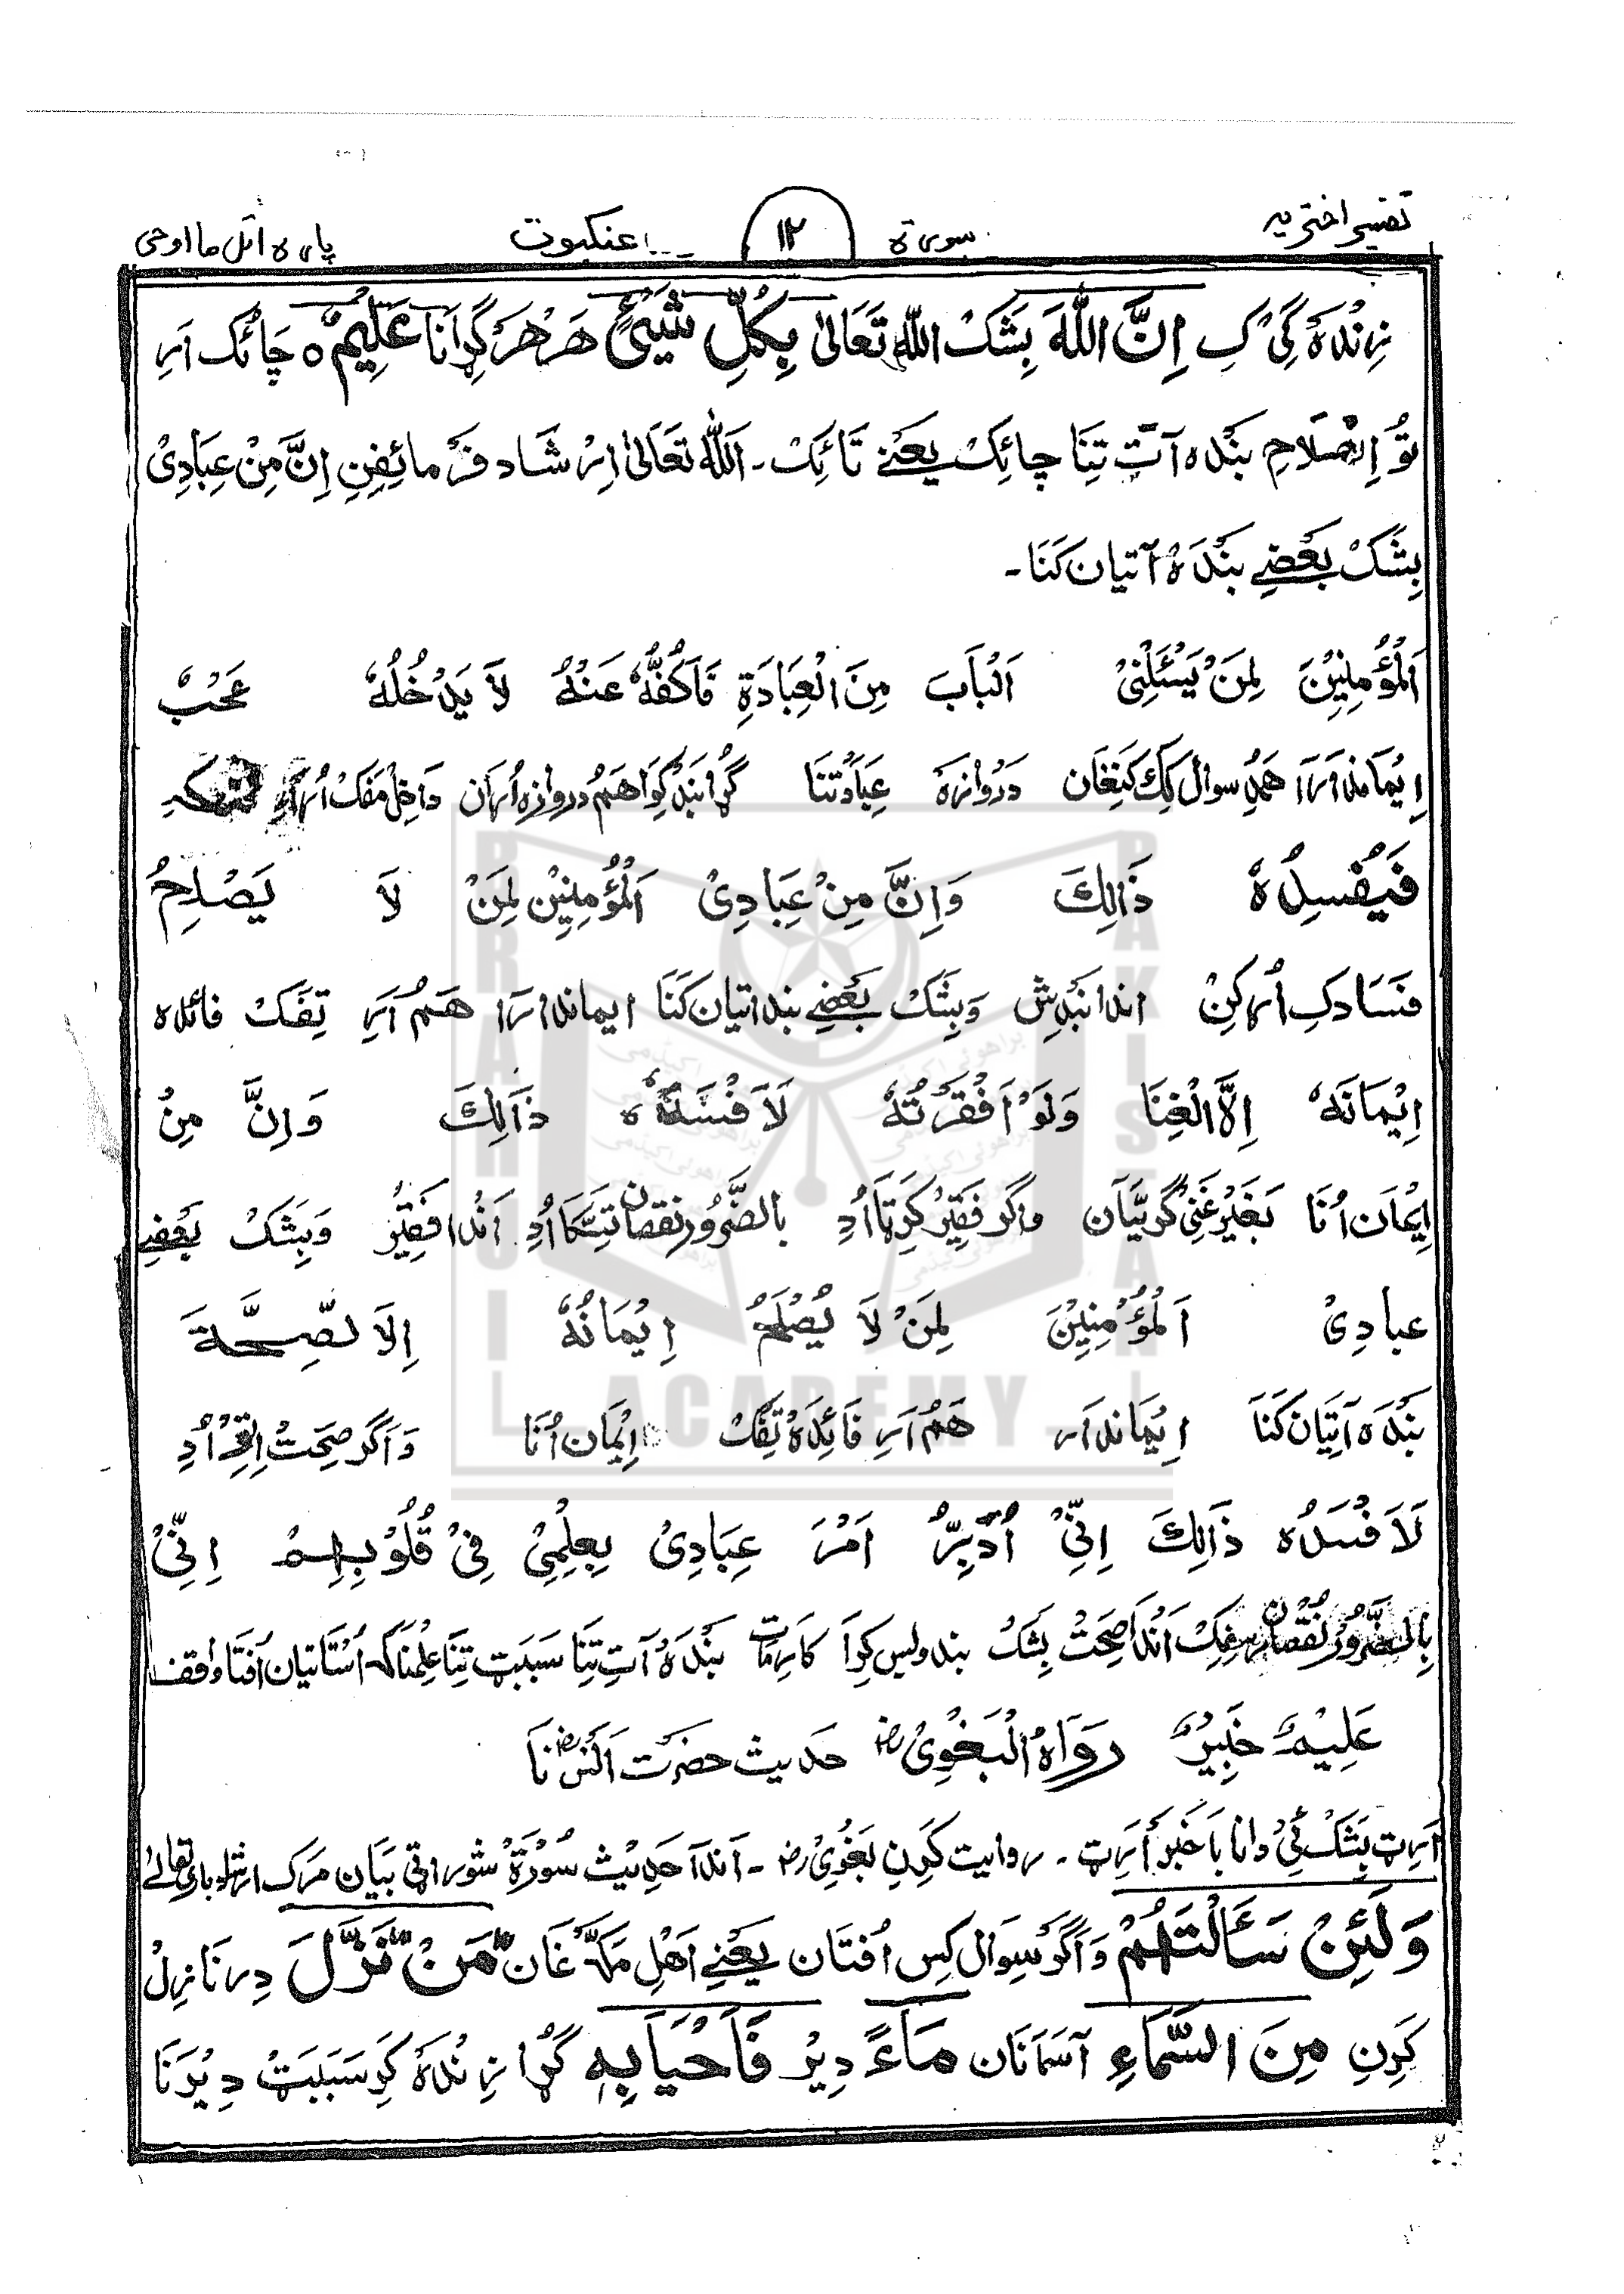 تفسير اختريه سورة ١٢ عنكبوت پاره اتل ما اوحى
زِنْدَہ گِیْ کِ اِنَّ اللّٰهَ بِشَکْ اللّٰه تَعَالیٰ بِكُلِّ شَيْئٍ هَرْ هَرْ گِڑَانَا عَلِيْمٌ ه چَائِک اَرِ
تُو اِصْلَاحِ بَنْدَه آتِ تِنَا چائِکْ یَعْنِے تَائِکْ ۔ اَللّٰه تَعَالیٰ اِرْشَاد فَرْمائِفِنِ اِنَّ مِنْ عِبَادِیْ
بِشَکْ بَعْضِے بَنْدَهْ آتیَان کَنَا ۔
اَلْمُؤْمِنِيْنَ لِمَنْ يَسْئَلُنِىْ اَلْبَابَ مِنَ الْعِبَادَةِ فَاَكُفُّهٗ عَنْهُ لَا يَدْخُلُهٗ عُجْبٌ
اِیْمَاندَارَا هَمُ سوال کِکْ کَنِغَان دَرْوَازَهْ عِبَادَتْنَا گُڑا بَنْد کِوَا هَمُ دروازه اُرَان دَاخِل مَفَکْ اُرَاٹِ
فَيُفْسِدُهٗ ذَالِكَ وَاِنَّ مِنْ عِبَادِىْ اَلْمُؤْمِنِيْن لِمَنْ لَا يَصْلِحُ
فَسَادکِ اُرکِنْ اندا بَنْدِش وَبِشَکْ بَعْضِے بندا تیان کَنَا ایماندارَا هَمُ اَرِ تِفَکْ فائده
اِيْمَانَهٗ اِلَّا الْغِنَا وَلَوْ اَفْقَرْتُهٗ لَاَفْسَدَهٗ ذَالِكَ وَاِنَّ مِنْ
اِیْمَان اُنَا بَغَیْرِ غَنِیْ گرِیْیَان واگر فَقِیْر کِرِیْتَا اُدِ بالضَّرُوْر نقصان تِتَکَا اُدِ اَنْدا فَقِیْرِی وَبِشَکْ بَعْضِے
عبادِىْ اَلْمُؤْمِنِيْنَ لِمَنْ لَا يُصْلِحُ اِيْمَانَهٗ اِلَا لصِّحَّةَ
بَنْدَه آتِیَان کَنَا اِیْمَاندَار هَمُ اَرِ فَائِدَهْ تِفَکْ اِیْمَان اُنَا وَاَگر صِحَتْ اُدِ
لَاَفْسَدَه ذَالِكَ اِنِّىْ اُدَبِّرُ اَمْرَ عِبَادِىْ بِعِلْمِىْ فِىْ قُلُوْبِهِمْ اِنِّىْ
بِالضَّرُوْر نُقْصَان رَسِفِکْ اَنْدَا صِحَتْ بِشَکْ بندوبس کِوَا کَارِمَات بَنْدَهْ آتِ تِنَا سَبَبَٹ تِنَا عِلْمنَاکِ اُسْتَاتِیَان اُفْتَا وَاقِف
عَلِيْمٌ خَبِيْرٌ رَوَاهُ الْبَغْوِىْ رض حَديث حضرَت اَنَسْ رض نَا
اَرِٹ بِشَکْ ئِیْ دانا بَا خَبَر اَرِٹ ۔ روایت کَرِنِ بَغْوِیْ رض ۔ اَندَا حَدِیْث سُوْرَةْ شورا ٹی بَیَان مَرَک ارشاد باری تعالیٰ
وَلَئِنْ سَأَلْتَهُمْ وَاَگر سِوَال کِس اُفتَان یَعْنِے اَهْلِ مَکَّه غَان مَنْ نَزَّلَ دِر نَازِلْ
کَرِنِ مِنَ السَّمَاءِ آسمَانَان مَاءً دِیْر فَاَحْيَابِهِ گُڑا زِنْدَهْ کَرِ سَبَبَٹ دِیْرَنَا
BRAHUI ACADEMY PAKISTAN